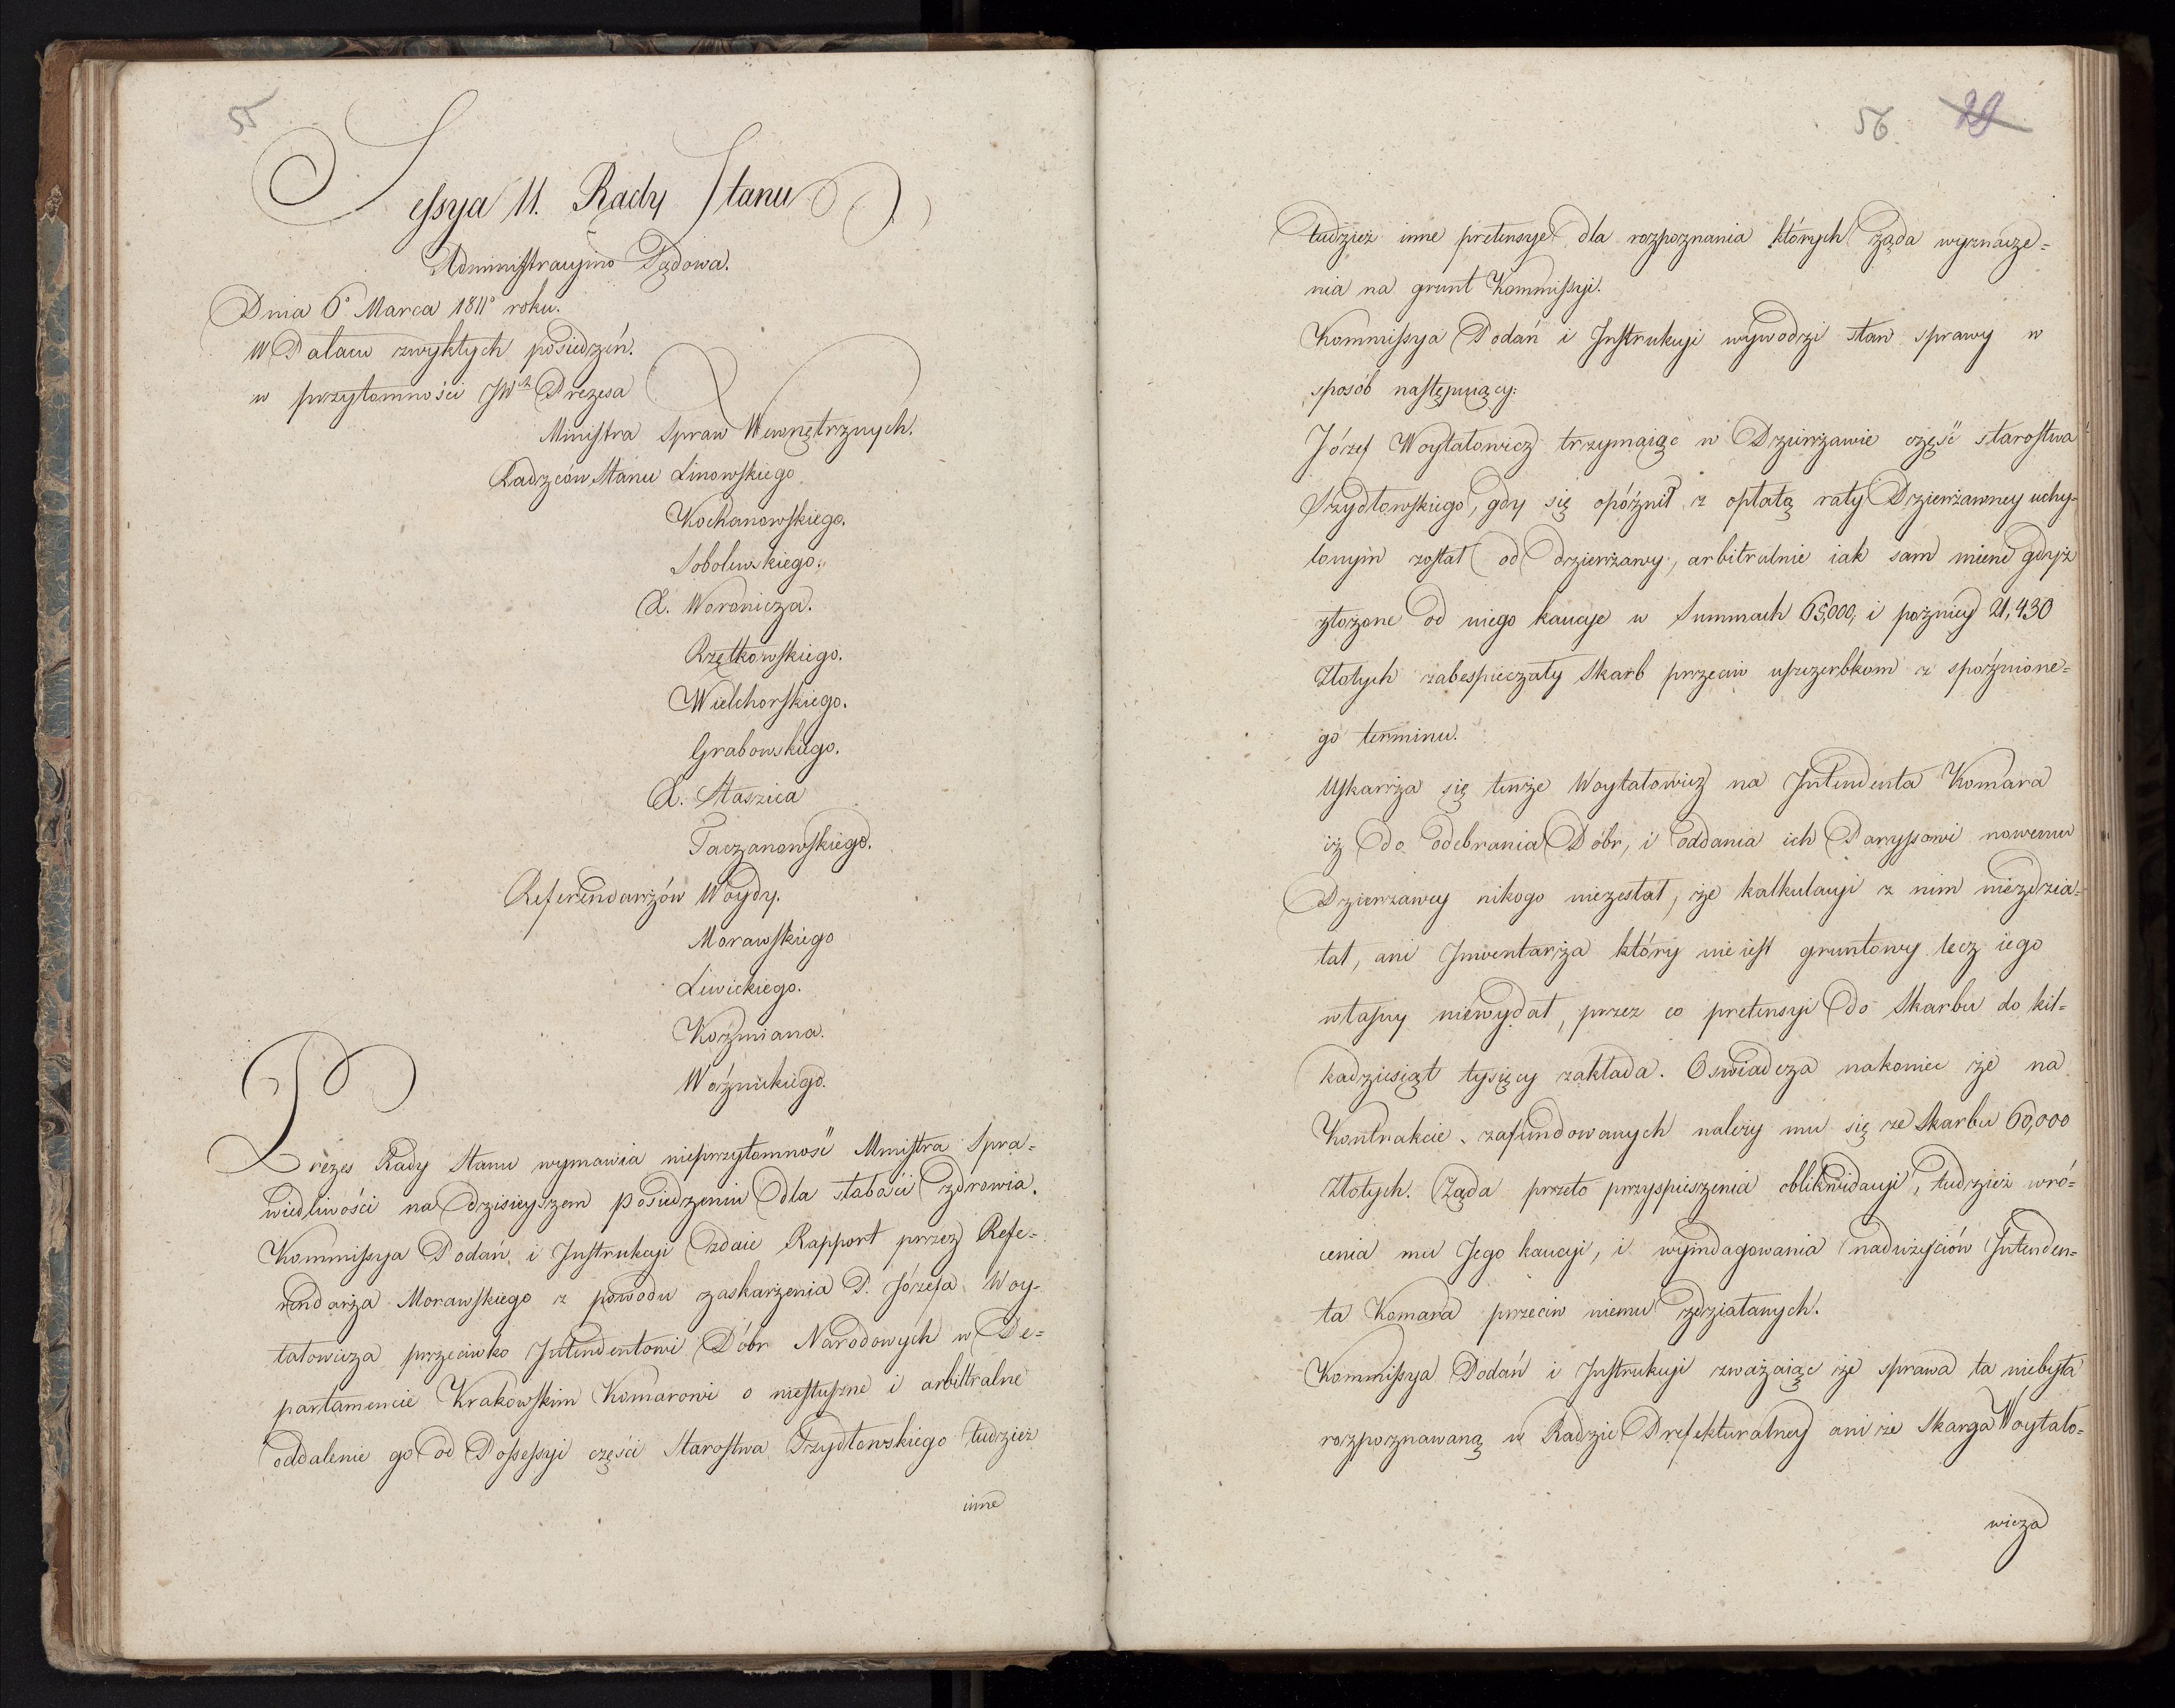 55
Sessya 11. Rady Stanu
Administracyino Sądowa.
Dnia 6° Marca 1811° roku.
W Pałacu zwykłych posiedzeń.
w przytomności JWch Prezesa
Ministra Spraw Wewnętrznych.
Radzców Stanu Linowskiego
Kochanowskiego.
Sobolewskiego.
X. Woronicza.
Rzętkowskiego.
Wielhorskiego.
Grabowskiego.
X. Staszica
Taczanowskiego.
Referendarzów Woydy.
Morawskiego
Lewickiego.
Koźmiana.
Woźnickiego.
Prezes Rady Stanu wymawia nieprzytomność Ministra Spra=
wiedliwości na dzisieyszem posiedzeniu dla słabości zdrowia.
Kommissya Podań i Instrukcyi zdaie Rapport przez Refe=
rendarza Morawskiego z powodu zaskarżenia P. Józefa Woy=
tatowicza przeciwko Intendentowi Dóbr Narodowych w De=
partamencie Krakowskim Komarowi o niesłuszne i arbitralne
oddalenie go od Possessyi części Starostwa Szydłowskiego tudzież
inne
56 29
tudzież inne pretensye dla rozpoznania których żąda wyznacze=
nia na grunt Kommissyi.
Kommissya Podań i Instrukcyi wywodzi stan sprawy w
sposób następuiący:
Józef Woytatowicz trzymaiąc w Dzierżawie część starostwa
Szydłowskiego, gdy się opóźnił z opłatą raty Dzierżawney uchy=
lonym został od dzierżawy, arbitralnie iak sam mieni gdyż
złożone od niego kaucye w Summach 65,000, i poźniey 21,430
Złotych zabespieczały Skarb przeciw uszczerbkom z spóźnione=
go terminu.
Uskarża się tenże Woytatowicz na Intendenta Komara
iż do odebrania Dóbr, i oddania ich Paryssowi nowemu
Dzierżawcy nikogo niezesłał, że kalkulacyi z nim niezdzia=
łał, ani Inwentarza który nie iest gruntowy lecz iego
własny niewydał, przez co pretensyi do Skarbu do kil=
kadziesiąt tysięcy zakłada. Oświadcza nakoniec że na
Kontrakcie zafundowanych należy mu się ze Skarbu 60,000
Złotych. Żąda przeto przyspieszenia oblikwidacyi, tudzież wró=
cenia mu Jego kaucyi, i wyindagowania nadużyciów Intenden=
ta Komara przeciw niemu zdziałanych.
Kommissya Podań i Instrukcyi zważaiąc że sprawa ta niebyła
rozpoznawaną w Radzie Prefekturalney ani że Skarga Woytato=
wicza